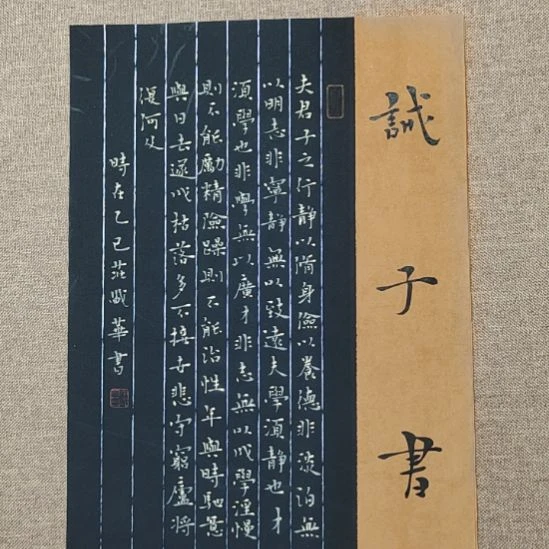 誡子書
夫君子之行静以脩身險以養德非淡泊無
以明志非寧静無以致遠夫學須静也才
須學也非學無以廣才非志無以成學淫慢
則不能勵精險躁則不能治性年與時馳意
與日去遂成枯落多不接世悲守窮廬將
復何及
時在乙巳莊盛華書